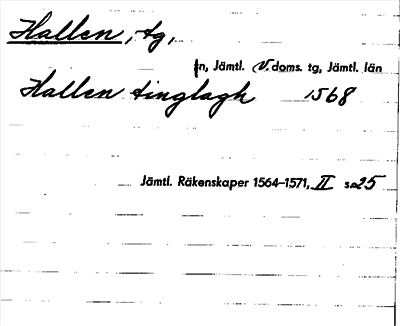 Hallen, tg,
n, Jämtl. V. doms. tg, Jämtl. län
Hallen tinglagh 1568
Jämtl. Räkenskaper 1564–1571, II s. 25